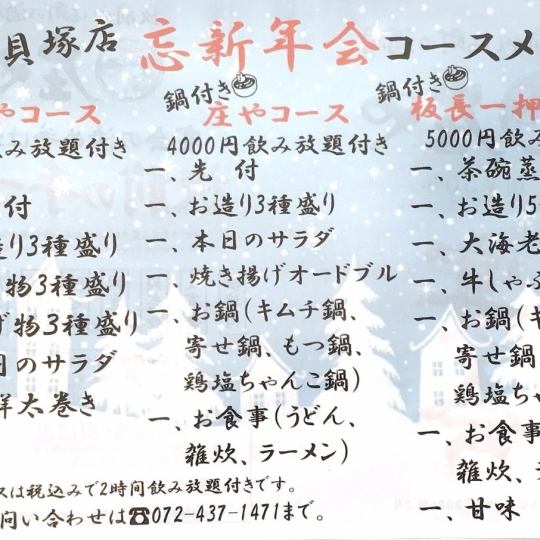 貝塚店 忘新年会コースメ
やコース
み放題付き
付
造り3種盛り
物3種盛り
げ物3種盛り
のサラダ
鮮太巻き
鍋付き
庄やコース
4000円飲み放題付き
一、先 付
一、お造り3種盛り
一、本日のサラダ
一、焼き揚げオードブル
一、お鍋(キムチ鍋、
寄せ鍋、もつ鍋、
鶏塩ちゃんこ鍋)
一、お食事(うどん、
雑炊、ラーメン)
鍋付き
板長一押
5000円飲み
一、茶碗蒸
一、お造り5
一、大海老
一、牛しゃぶ
一、お鍋(キ
寄せ鍋、
鶏塩ちゃん
一、お食事
雑炊、
一、甘味
スは税込みで2時間飲み放題付きです。
問い合わせは☎072-437-1471まで。